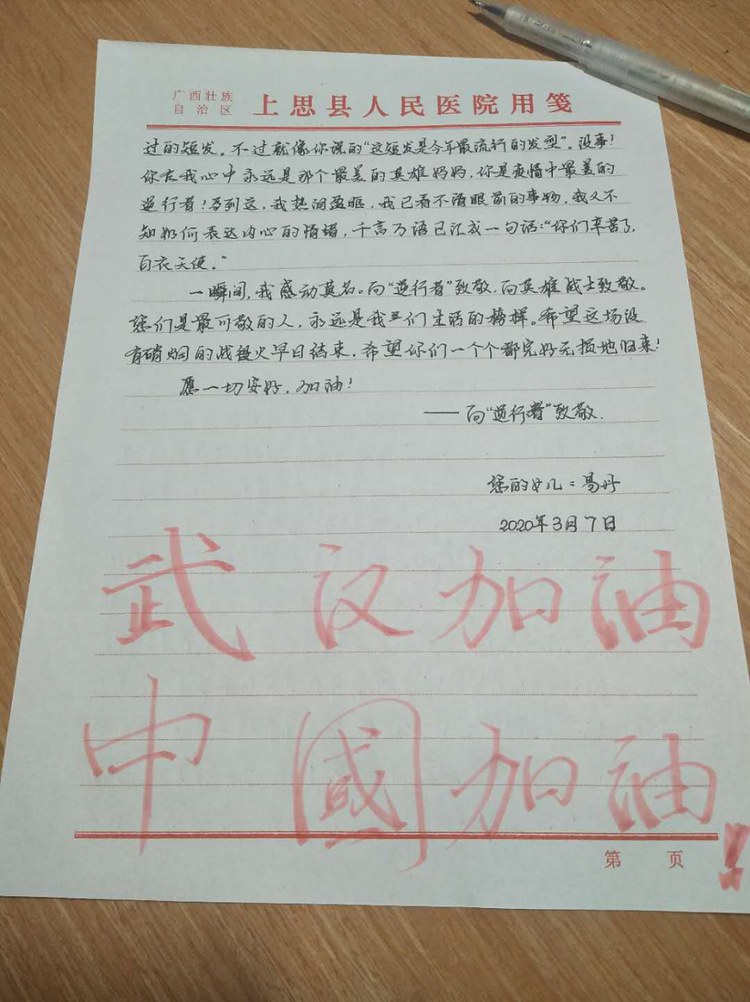 广西壮族
自治区
上思县人民医院用笺
过的短发。不过就像你说的“这短发是今年最流行的发型”。没事!
你在我心中永远是那个最美的英雄妈妈,你是疫情中最美的
逆行者!写到这,我热泪盈眶,我已看不清眼前的事物,我又不
知如何表达内心的情绪,千言万语已汇成一句话:“你们辛苦了,
白衣天使。”
一瞬间,我感动莫名。向“逆行者”致敬,向英雄战士致敬。
您们是最可敬的人,永远是我们生活的榜样。希望这场没
有硝烟的战役火早日结束,希望你们一个个都完好无损地归来!
愿一切安好,加油!
——向“逆行者”致敬.
您的女儿:易丹
2020年3月7日
武汉加油
中國加油!
第 页